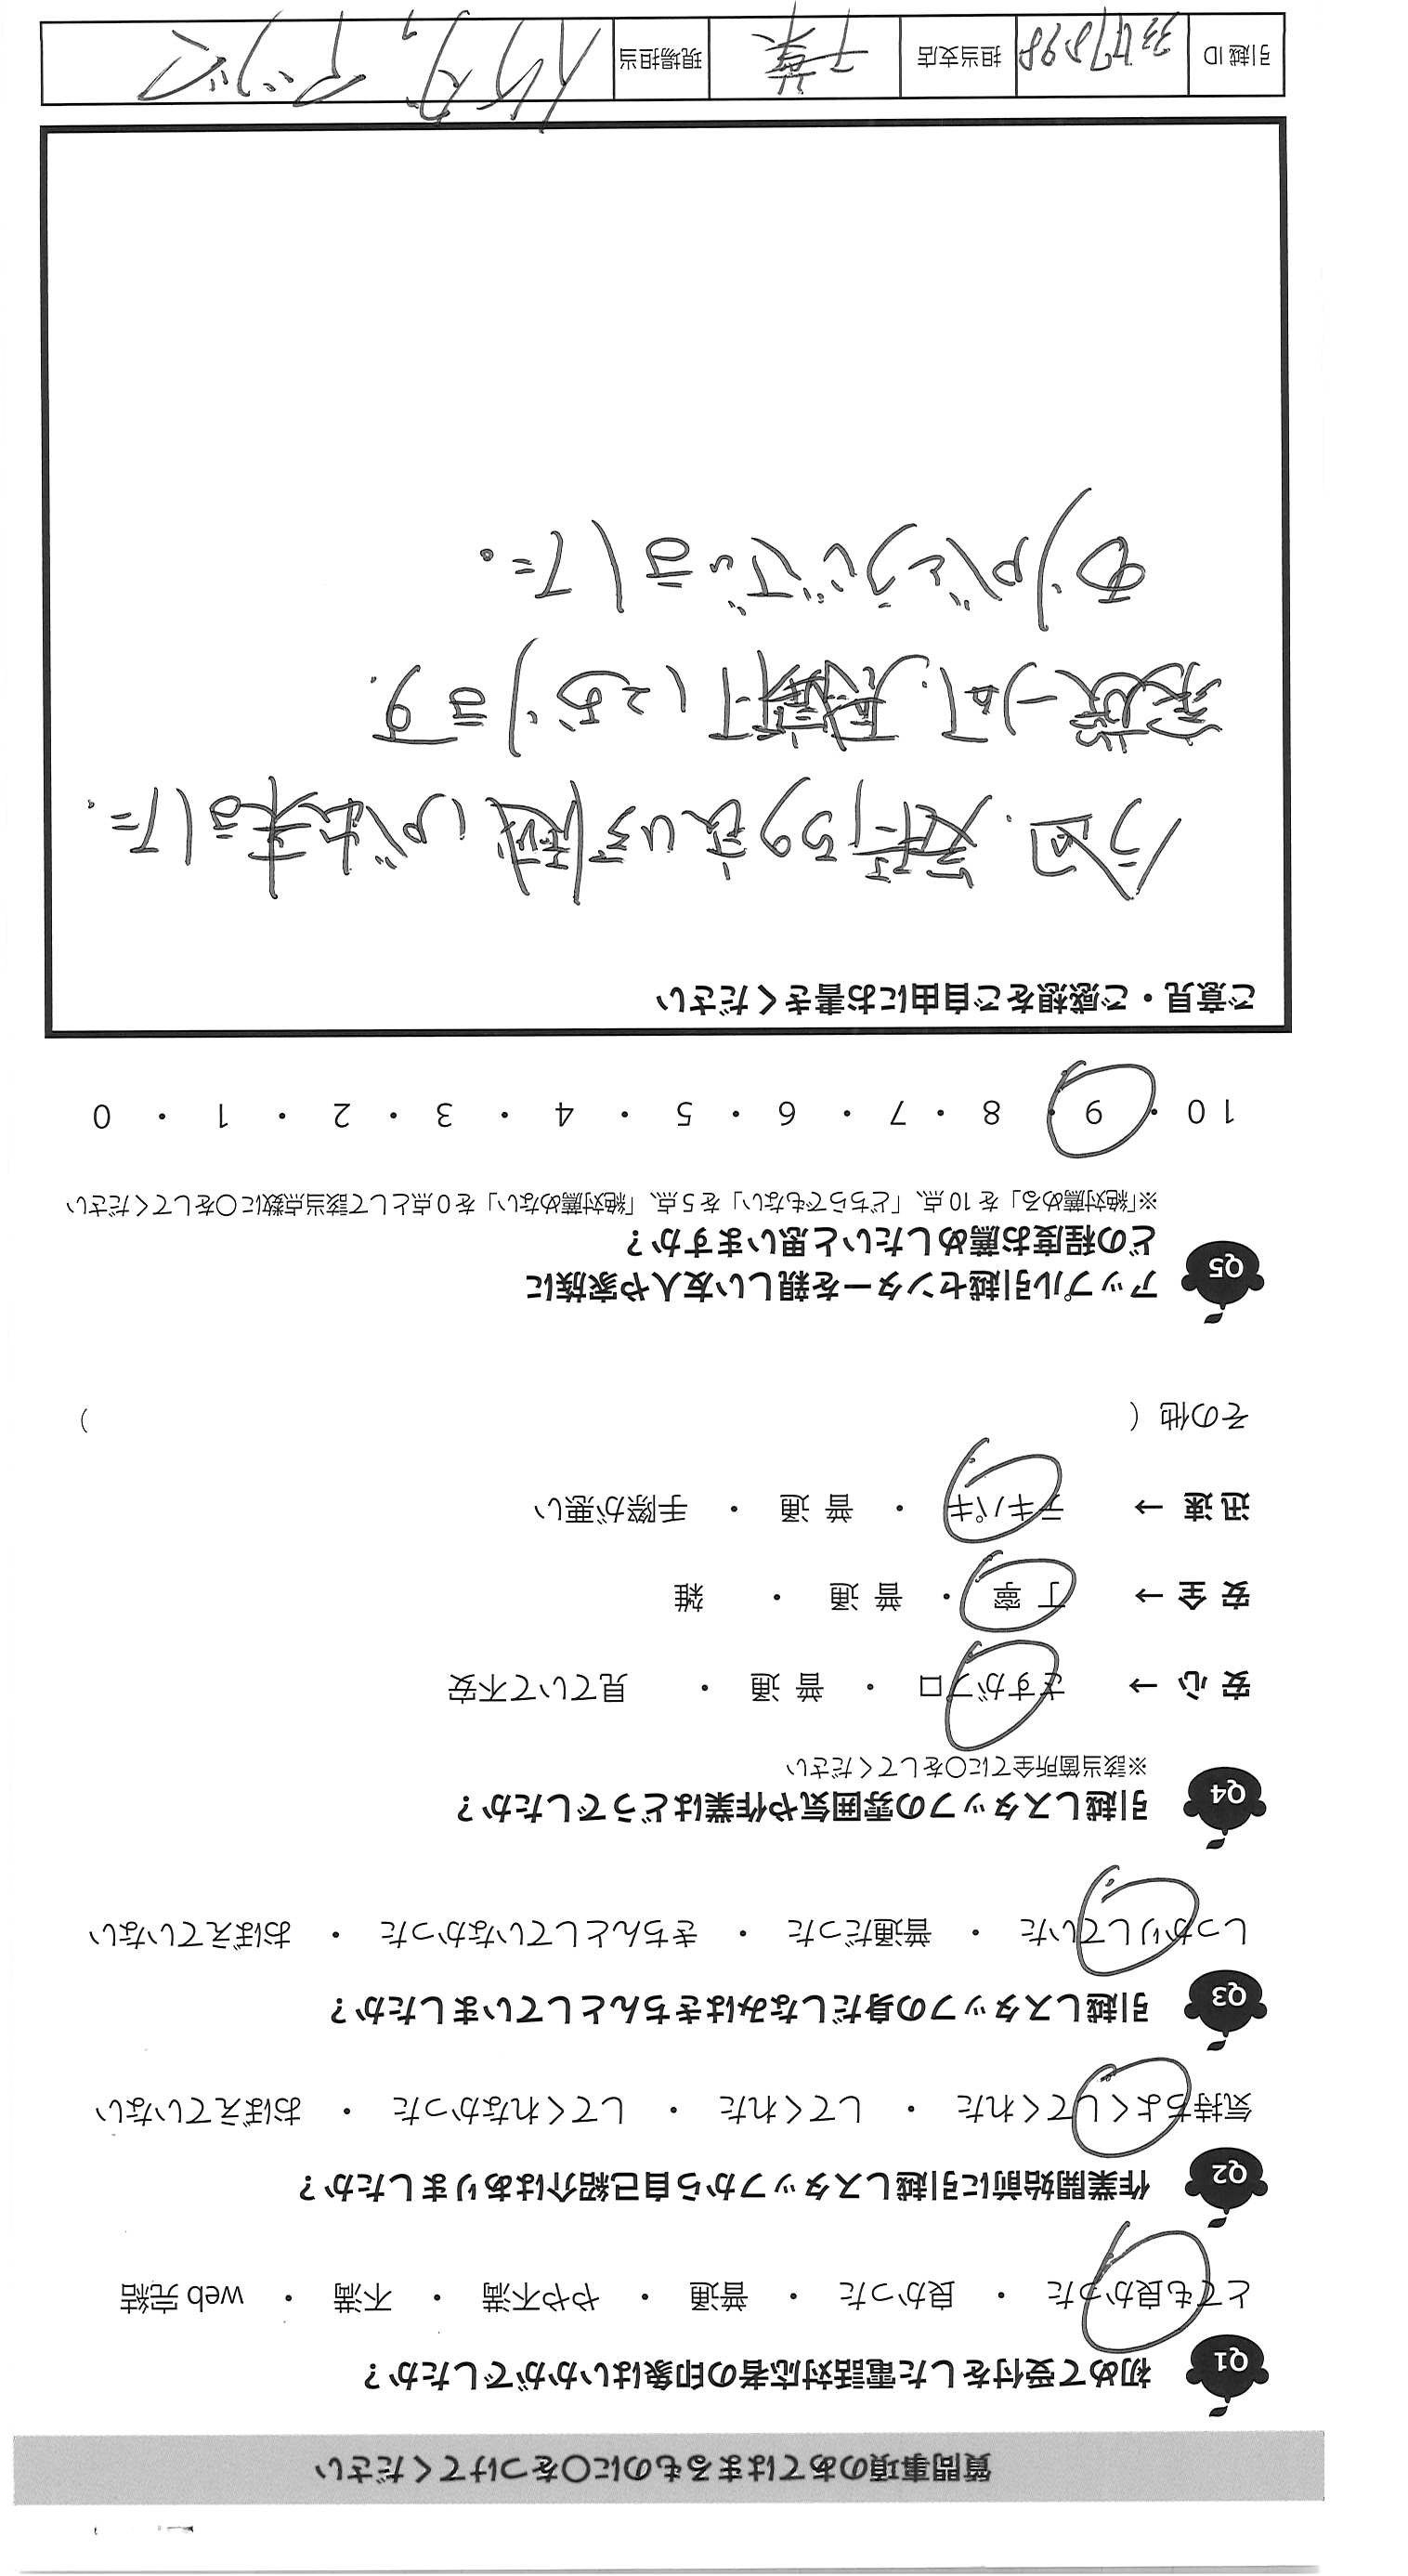 質問事項のあてはまるものに〇をつけてください
Q1 初めて受付をした電話対応者の印象はいかがでしたか？
とても良かった ・ 良かった ・ 普通 ・ やや不満 ・ 不満 ・ web 完結
Q2 作業開始前に引越しスタッフから自己紹介はありましたか？
気持ちよくしてくれた ・ してくれた ・ してくれなかった ・ おぼえていない
Q3 引越しスタッフの身だしなみはきちんとしていましたか？
しっかりしていた ・ 普通だった ・ きちんとしていなかった ・ おぼえていない
Q4 引越しスタッフの雰囲気や作業はどうでしたか？
※該当箇所全てに〇をしてください
安 心 → さすがプロ ・ 普 通 ・ 見ていて不安
安 全 → 丁 寧 ・ 普 通 ・ 雑
迅 速 → テキパキ ・ 普 通 ・ 手際が悪い
その他（ ）
Q5 アップル引越センターを親しい友人や家族に
どの程度お薦めしたいと思いますか？
※「絶対薦める」を 10 点、「どちらでもない」を 5 点、「絶対薦めない」を 0 点として該当点数に〇をしてください
10 ・ 9 ・ 8 ・ 7 ・ 6 ・ 5 ・ 4 ・ 3 ・ 2 ・ 1 ・ 0
ご意見・ご感想をご自由にお書きください
今回、気持ちの良い引越しが出来ました。
家族一同、感謝しております。
ありがとうございました。
引越 ID 担当支店 千葉 現場担当